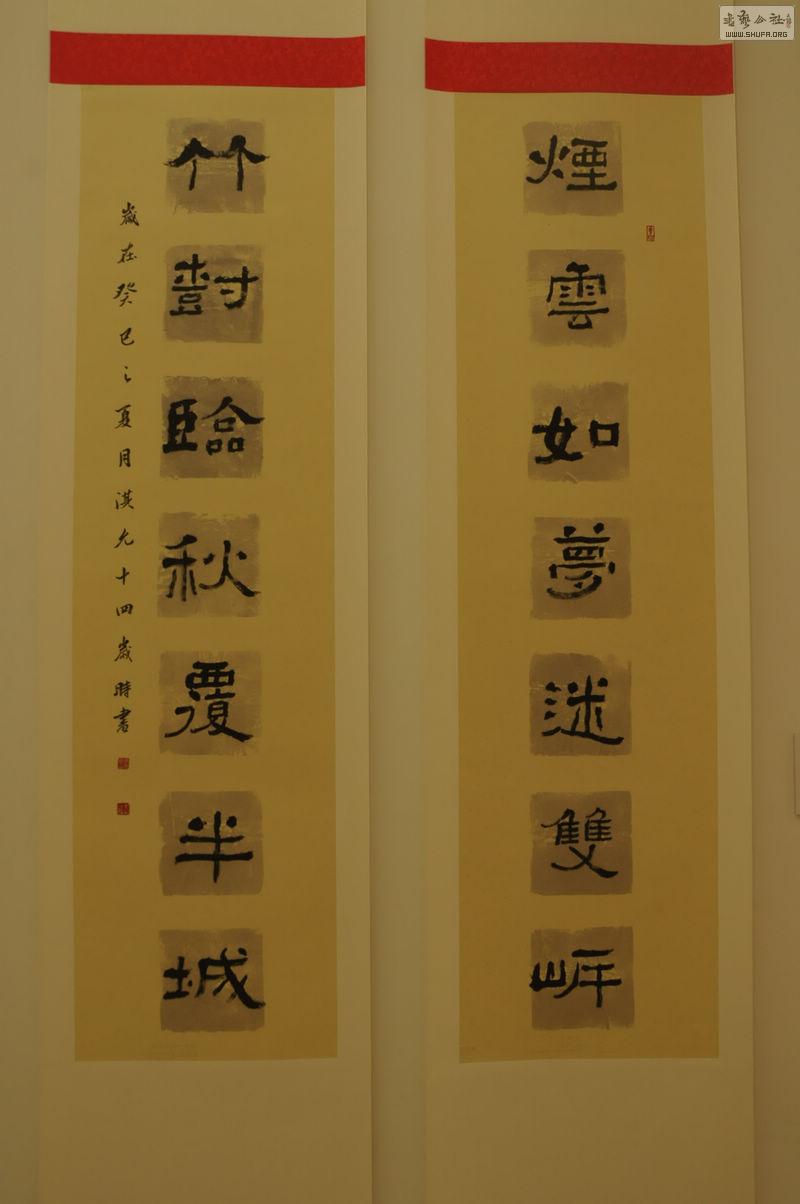 煙雲如夢迷雙岸
竹對臨秋覆半城
歲在癸巳之夏月淇九十四歲時書
書藝公社
WWW.SHUFA.ORG